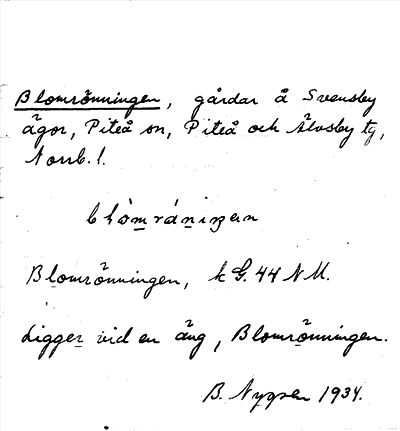 Blomrönningen, gårdar å Svensby
ägor, Piteå sn, Piteå och Älvsby tg,
Norrb. l.
Blomrönningen, k G. 44 NM.
Ligger vid en äng, Blomrönningen.
B. Nygren 1934.